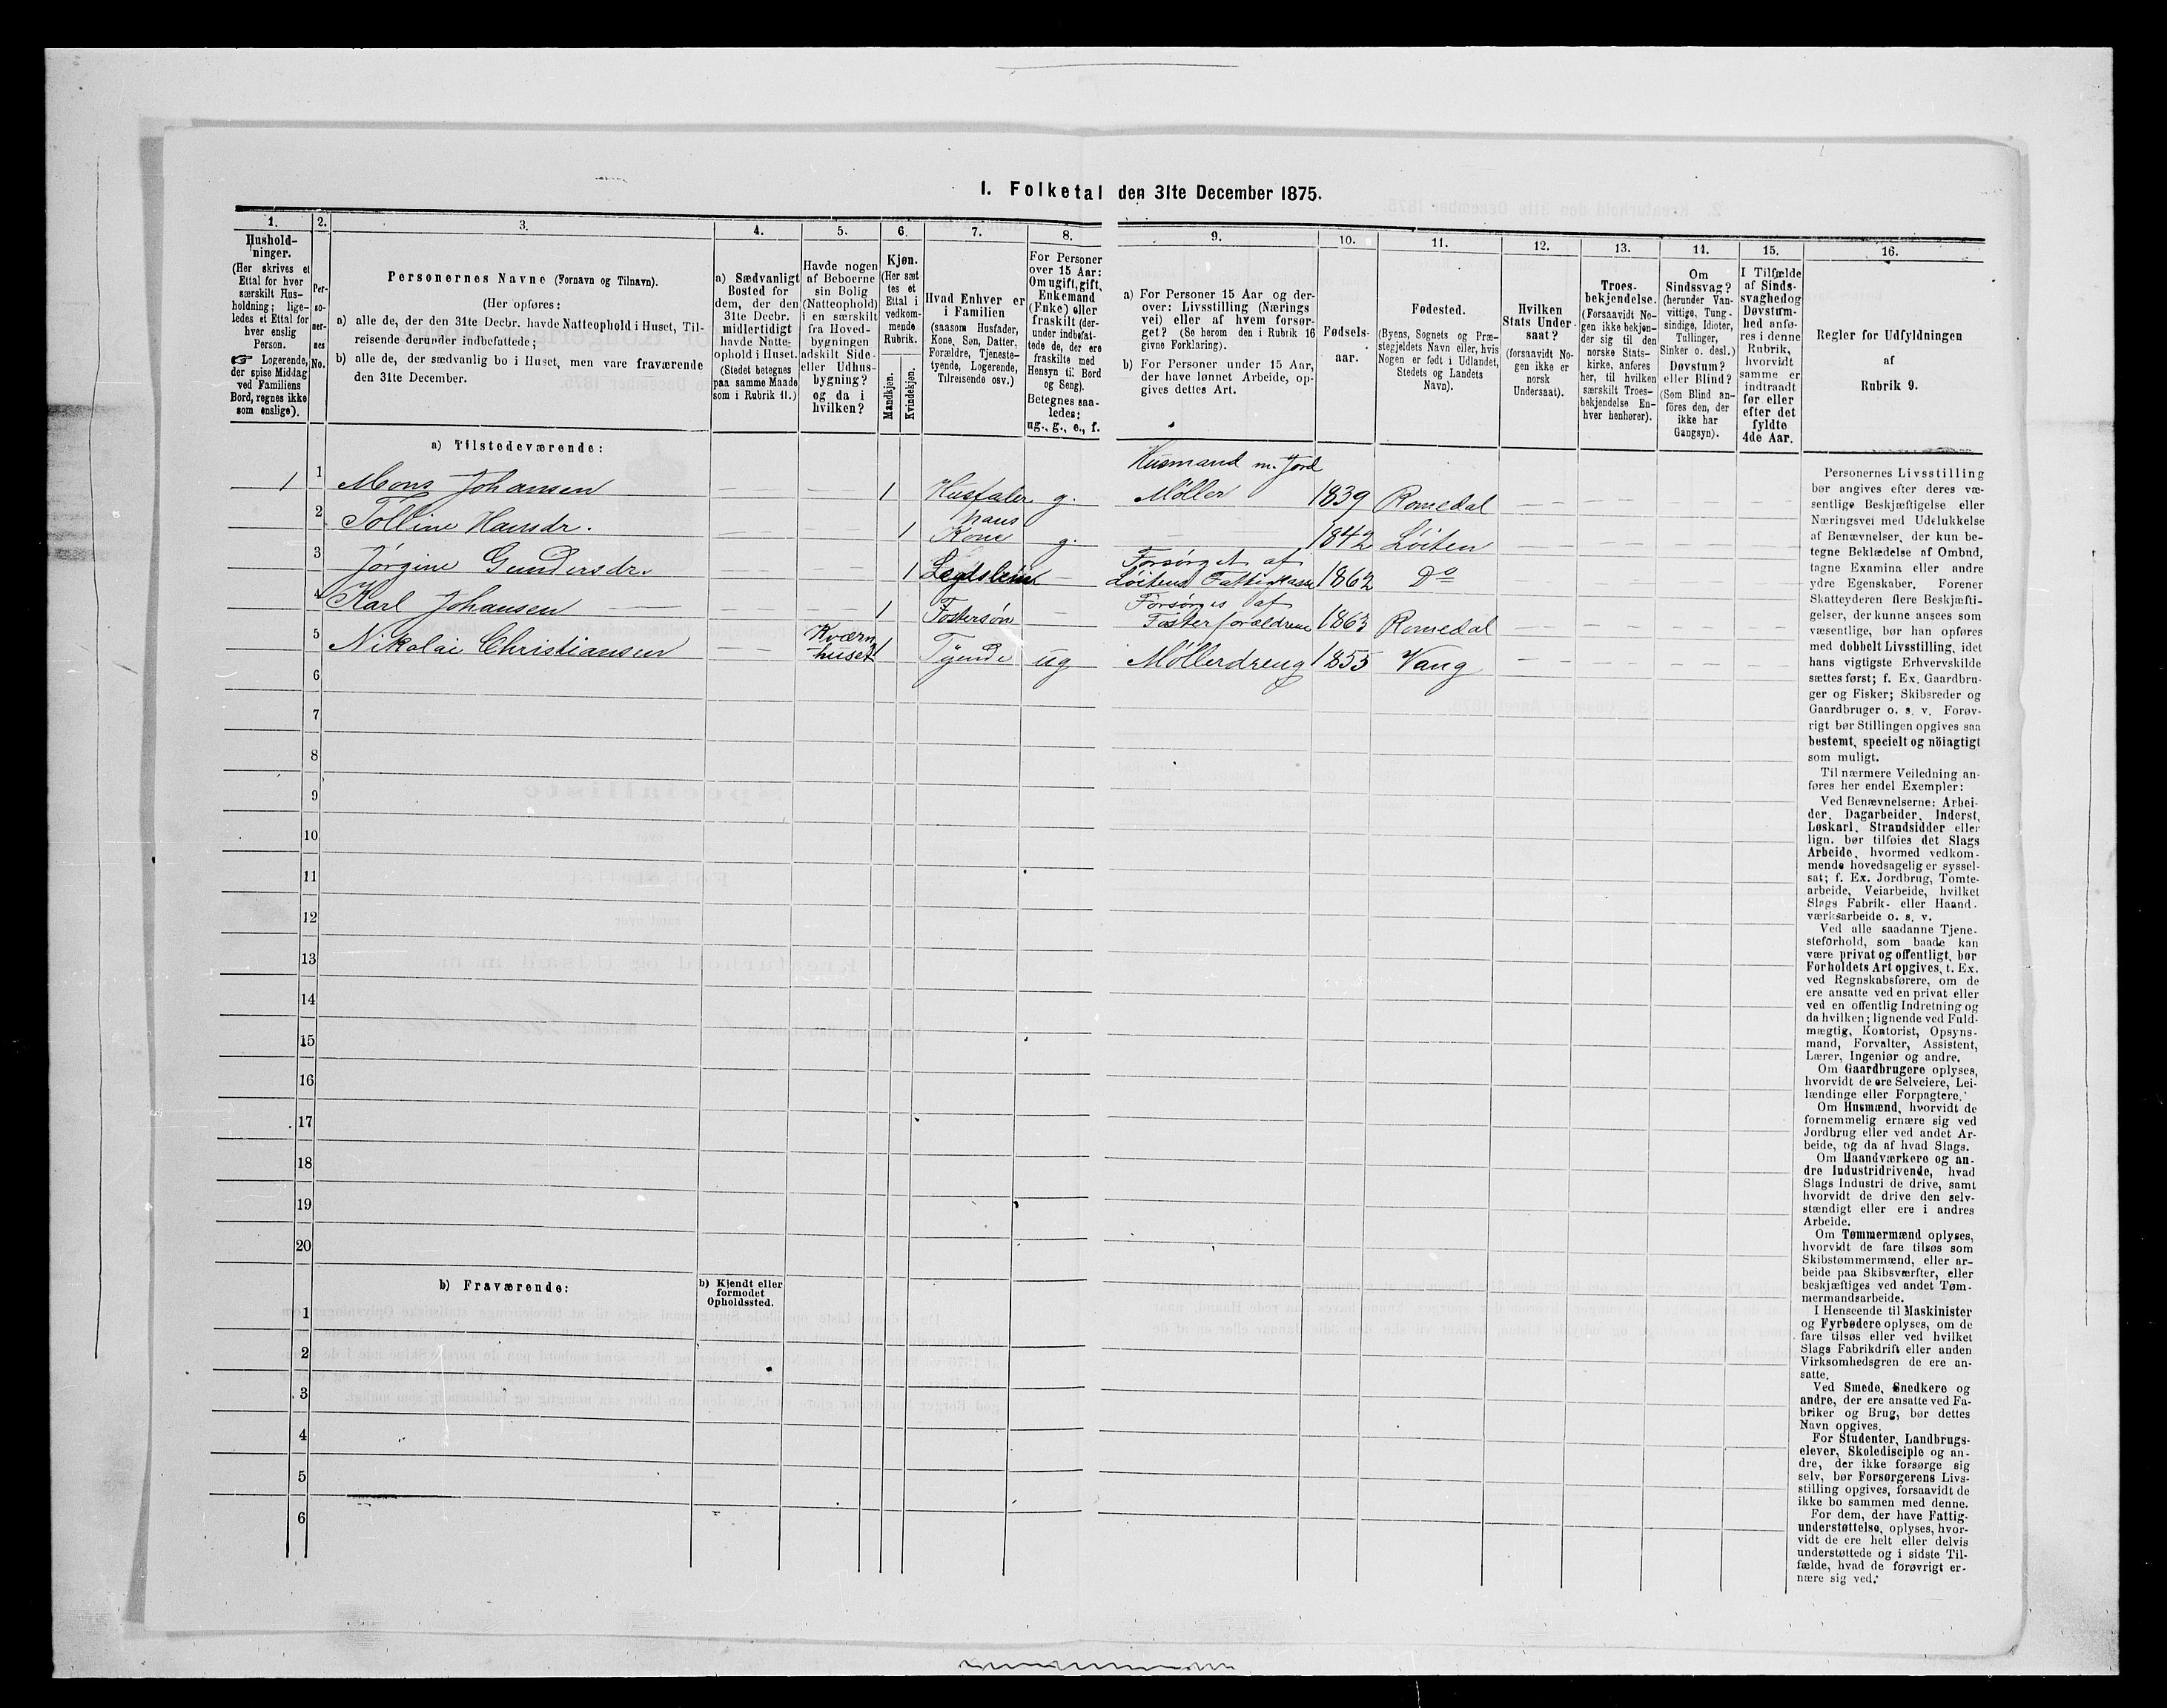 I. Folketal den 31te December 1875.
1.
Hushold-
ninger.
(Her skrives et
Ettal for hver
særskilt Hus-
holdning; lige-
ledes et Ettal for
hver enslig
Person.
☞ Logerende,
der spise Middag
ved Familiens
Bord, regnes ikke
som enslige).
2.
Per-
so-
ner-
nes
No.
3.
Personernes Navne (Fornavn og Tilnavn).
(Her opføres:
a) alle de, der den 31te Decbr. havde Natteophold i Huset, Til-
reisende derunder indbefattede;
b) alle de, der sædvanlig bo i Huset, men vare fraværende
den 31te December.
4.
a) Sædvanligt
Bosted for
dem, der den
31te Decbr.
midlertidigt
havde Natte-
ophold i Huset.
(Stedet betegnes
paa samme Maade
som i Rubrik 11.)
5.
Havde nogen
af Beboerne
sin Bolig
(Natteophold)
i en særskilt
fra Hoved-
bygningen
adskilt Side-
eller Udhus-
bygning?
og da i
hvilken?
6.
Kjøn.
(Her sæt
tes et
Ettal i
vedkom-
mende
Rubrik.
Mandkjøn.
Kvindekjøn.
7.
Hvad Enhver er
i Familien
(saasom Husfader,
Kone, Søn, Datter,
Forældre, Tjeneste-
tyende, Logerende,
Tilreisende osv.)
8.
For Personer
over 15 Aar:
Om ugift, gift,
Enkemand
(Enke) eller
fraskilt (der-
under indbefat-
tede de, der ere
fraskilte med
Hensyn til Bord
og Seng).
Betegnes saa-
ledes:
ug., g., e., f.
9.
a) For Personer 15 Aar og der-
over: Livsstilling (Nærings
vei) eller af hvem forsør-
get? (Se herom den i Rubrik 16
givne Forklaring).
b) For Personer under 15 Aar,
der have lønnet Arbeide, op-
gives dettes Art.
10.
Fødsels-
aar.
11.
Fødested.
(Byens, Sognets og Præ-
stegjeldets Navn eller, hvis
Nogen er født i Udlandet,
Stedets og Landets
Navn).
12.
Hvilken
Stats Under-
saat?
(forsaavidt No-
gen ikke er
norsk
Undersaat).
13.
Troes-
bekjendelse.
(Forsaavidt No-
gen ikke bekjen-
der sig til den
norske Stats-
kirke, anføres
her, til hvilken
særskilt Troes-
bekjendelse En-
hver henhører).
14.
Om
Sindssvag?
(herunder Van-
vittige, Tung-
sindige, Idioter,
Tullinger,
Sinker o. desl.)
Døvstum?
eller Blind?
(Som Blind an-
føres den, der
ikke har
Gangsyn).
15.
I Tilfælde
af Sinds-
svaghed og
Døvstum-
hed anfø-
res i denne
Rubrik,
hvorvidt
samme er
indtraadt
før eller
efter det
fyldte
4de Aar.
16.
Regler for Udfyldningen
af
Rubrik 9.
a) Tilstedeværende:
Husmand m. Jord
1 1 Mons Johansen — — 1 Husfader g. Møller 1839 Romedal — — — — —
2 Tolline Hansdr. — — 1 hans Kone g. — 1842 Løiten — — — — —
3 Jørgine Gundersdr. — — 1 Legdslem — Forsørget af
Løitens Fattigkasse 1862 Do — — — — —
4 Karl Johansen — — 1 Fostersøn — Forsørges af
Fosterforældrene 1863 Romedal — — — — —
5 Nikolai Christiansen — — Kværn
huset 1 Tyende ug Møllerdreng 1855 Vang — — — — —
6
7
8
9
10
11
12
13
14
15
16
17
18
19
20
b) Fraværende:
b) Kjendt eller
formodet
Opholdssted.
1
2
3
4
5
6
Personernes Livsstilling
bør angives efter deres væ-
sentlige Beskjæftigelse eller
Næringsvei med Udelukkelse
af Benævnelser, der kun be-
tegne Beklædelse af Ombud,
tagne Examina eller andre
ydre Egenskaber. Forener
Skatteyderen flere Beskjæfti-
gelser, der kunne ansees som
væsentlige, bør han opføres
med dobbelt Livsstilling, idet
hans vigtigste Erhvervskilde
sættes først; f. Ex. Gaardbru-
ger og Fisker; Skibsreder og
Gaardbruger o. s. v. Forøv-
rigt bør Stillingen opgives saa
bestemt, specielt og nöiagtigt
som muligt.
Til nærmere Veiledning an-
føres her endel Exempler:
Ved Benævnelserne: Arbei-
der, Dagarbeider, Inderst,
Løskarl, Strandsidder eller
lign. bør tilføies det Slags
Arbeide, hvormed vedkom-
mende hovedsagelig er syssel-
sat; f. Ex. Jordbrug, Tomte-
arbeide, Veiarbeide, hvilket
Slags Fabrik- eller Haand-
værksarbeide o. s. v.
Ved alle saadanne Tjene-
steforhold, som baade kan
være privat og offentligt, bør
Forholdets Art opgives, t. Ex.
ved Regnskabsførere, om de
ere ansatte ved en privat eller
ved en offentlig Indretning og
da hvilken; lignende ved Fuld-
mægtig, Kontorist, Opsyns-
mand, Forvalter, Assistent,
Lærer, Ingeniør og andre.
Om Gaardbrugere oplyses,
hvorvidt de ere Selveiere, Lei-
lændinge eller Forpagtere.
Om Husmænd, hvorvidt de
fornemmelig ernære sig ved
Jordbrug eller ved andet Ar-
beide, og da af hvad Slags.
Om Haandværkere og an-
dre Industridrivende, hvad
Slags Industri de drive, samt
hvorvidt de drive den selv-
stændigt eller ere i andres
Arbeide.
Om Tømmermænd oplyses,
hvorvidt de fare tilsøs som
Skibstømmermænd, eller ar-
beide paa Skibsværfter, eller
beskjæftiges ved andet Tøm-
mermandsarbeide.
I Henseende til Maskinister
og Fyrbødere oplyses, om de
fare tilsøs eller ved hvilket
Slags Fabrikdrift eller anden
Virksomhedsgren de ere an-
satte.
Ved Smede, Snedkere og
andre, der ere ansatte ved Fa-
briker og Brug, bør dettes
Navn opgives.
For Studenter, Landbrugs-
elever, Skoledisciple og an-
dre, der ikke forsørge sig
selv, bør Forsørgerens Livs-
stilling opgives, forsaavidt de
ikke bo sammen med denne.
For dem, der have Fattig-
understøttelse, oplyses, hvor-
vidt de ere helt eller delvis
understøttede og i sidste Til-
fælde, hvad de forøvrigt er-
nære sig ved.